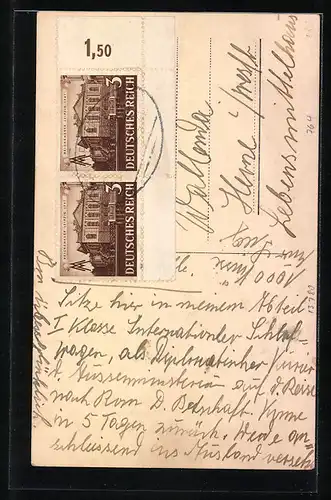 1,50
3
DEUTSCHES REICH
3
DEUTSCHES REICH
Wallenda
Herne i/Westf
Lebensmittelhaus
764
1000
Sitze hier in meinem Abteil
I Klasse Internationler Schlaf-
wagen, als Diplomatischer Kurier
d. Aussenministerium auf d. Reise
nach Rom D. Botschaft. Komme
in 5 Tagen zurück. Werde an-
schliessend ins Ausland versetzt